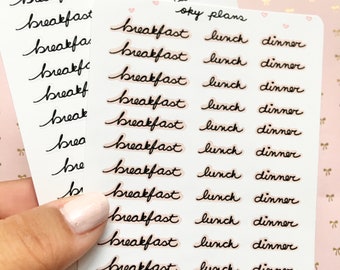 oky plans
breakfast lunch dinner
breakfast lunch dinner
breakfast lunch dinner
breakfast lunch dinner
breakfast lunch dinner
breakfast lunch dinner
breakfast lunch dinner
breakfast lunch dinner
breakfast lunch dinner
breakfast lunch dinner
breakfast lunch dinner
breakfast
breakfast
breakfast
breakfast
breakfast
breakfast
breakfast
breakfast